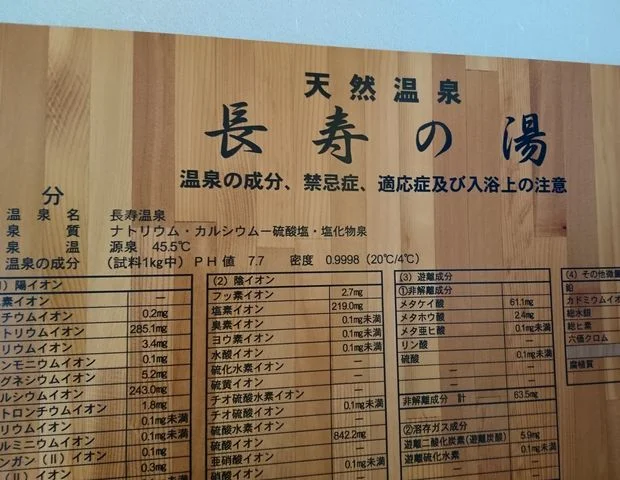 天然温泉
長寿の湯
温泉の成分、禁忌症、適応症及び入浴上の注意
分
温泉名 長寿温泉
泉質 ナトリウム・カルシウムー硫酸塩・塩化物泉
泉温 源泉 45.5℃
温泉の成分 (試料1kg中) PH値 7.7 密度 0.9998 (20℃/4℃)
) 陽イオン
素イオン —
チウムイオン 0.2mg
トリウムイオン 285.1mg
リウムイオン 3.4mg
ンモニウムイオン 0.1mg
グネシウムイオン 5.2mg
ルシウムイオン 243.0mg
トロンチウムイオン 1.8mg
リウムイオン 0.1mg未満
ルミニウムイオン 0.1mg
ンガン(II)イオン 0.1mg未満
(II)イオン 0.3mg
(2) 陰イオン
フッ素イオン 2.7mg
塩素イオン 219.0mg
臭素イオン 0.1mg未満
ヨウ素イオン 0.1mg未満
水酸イオン —
硫化水素イオン —
硫黄イオン —
チオ硫酸水素イオン —
チオ硫酸イオン 0.1mg未満
硫酸水素イオン —
硫酸イオン 842.2mg
亜硝酸イオン —
硝酸イオン 0.1mg未満
(3) 遊離成分
①非解離成分
メタケイ酸 61.1mg
メタホウ酸 2.4mg
メタ亜ヒ酸 0.1mg未満
リン酸 —
硫酸 0.1mg未満
—
—
非解離成分 計 63.5mg
②溶存ガス成分
遊離二酸化炭素(遊離炭酸) 5.9mg
遊離硫化水素 0.1mg未満
—
(4) その他微量
鉛
カドミウムイオ
総水銀
総ヒ素
六価クロム
腐植質